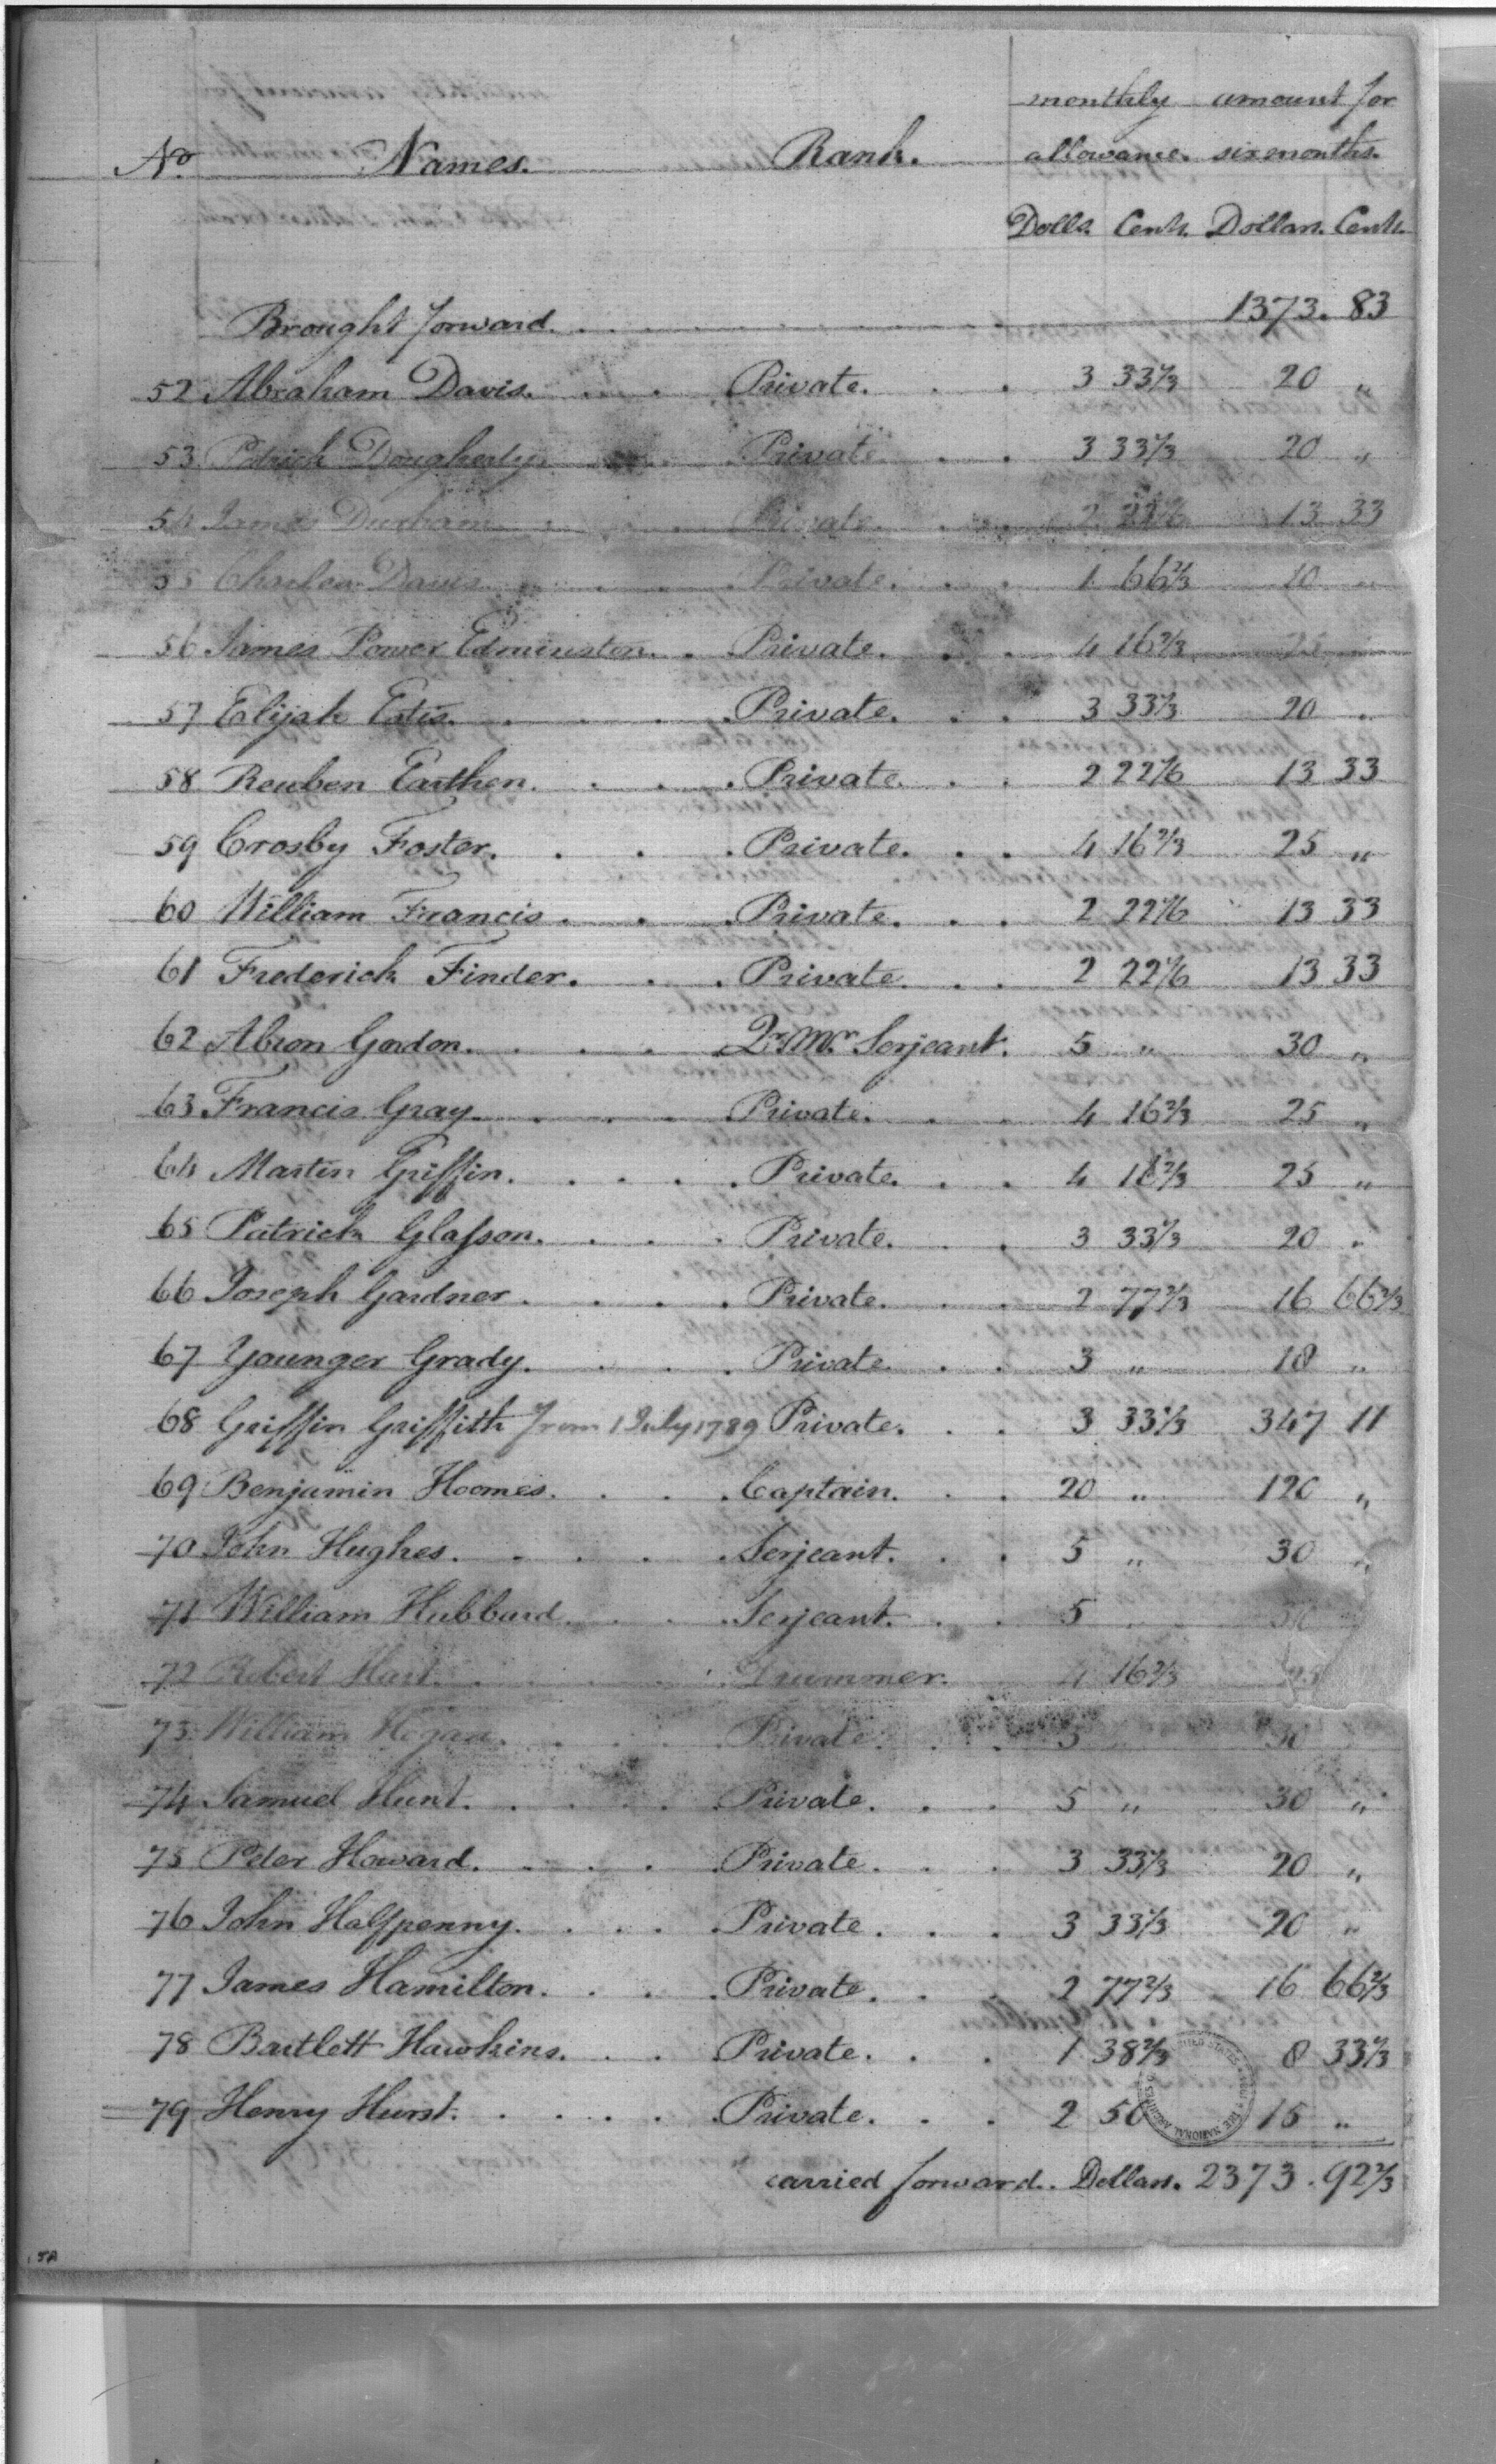 monthly amount for
No. Names. Rank. allowance. six months.
Dolls. Cents. Dollars. Cents.
Brought forward. 1373. 83
52 Abraham Davis. Private. 3 33 1/3 20 "
53 Patrick Dougherty. Private. 3 33 1/3 20 "
54 James Durham Private. 2 13 33
55 Charles Davis Private. 1 66 2/3 10 "
56 James Power Edminston. Private. 4 16 2/3
57 Elijah Estis. Private. 3 33 1/3 20 "
58 Reuben Earthen. Private. 2 22 1/6 13 33
59 Crosby Foster. Private. 4 16 2/3 25 "
60 William Francis. Private. 2 22 1/6 13 33
61 Frederick Finder. Private. 2 22 1/6 13 33
62 Abron Gordon. Qr. Mr. Serjeant. 5 " 30 "
63 Francis Gray. Private. 4 16 2/3 25 "
64 Martin Griffin. Private. 4 16 2/3 25 "
65 Patrick Glasson. Private. 3 33 1/3 20 "
66 Joseph Gardner. Private. 2 77 2/3 16 66 2/3
67 Younger Grady. Private. 3 " 18 "
68 Griffin Griffith from 1 July 1789 Private. 3 33 1/3 347 11
69 Benjamin Hoomes. Captain. 20 " 120 "
70 John Hughes. Serjeant. 5 " 30 "
71 William Hubbard. Serjeant. 5 "
72 Robert Hart. Drummer. 4 16 2/3 25
73 William Hogan. Private. 5 30
74 Samuel Hunt. Private. 5 " 30 "
75 Peter Howard. Private. 3 33 1/3 20 "
76 John Halfpenny. Private. 3 33 1/3 20 "
77 James Hamilton. Private. 2 77 2/3 16 66 2/3
78 Bartlett Hawkins. Private. 1 38 2/3 8 33 1/3
79 Henry Hurst. Private. 2 50 15 "
carried forward. Dollars. 2373. 92 2/3